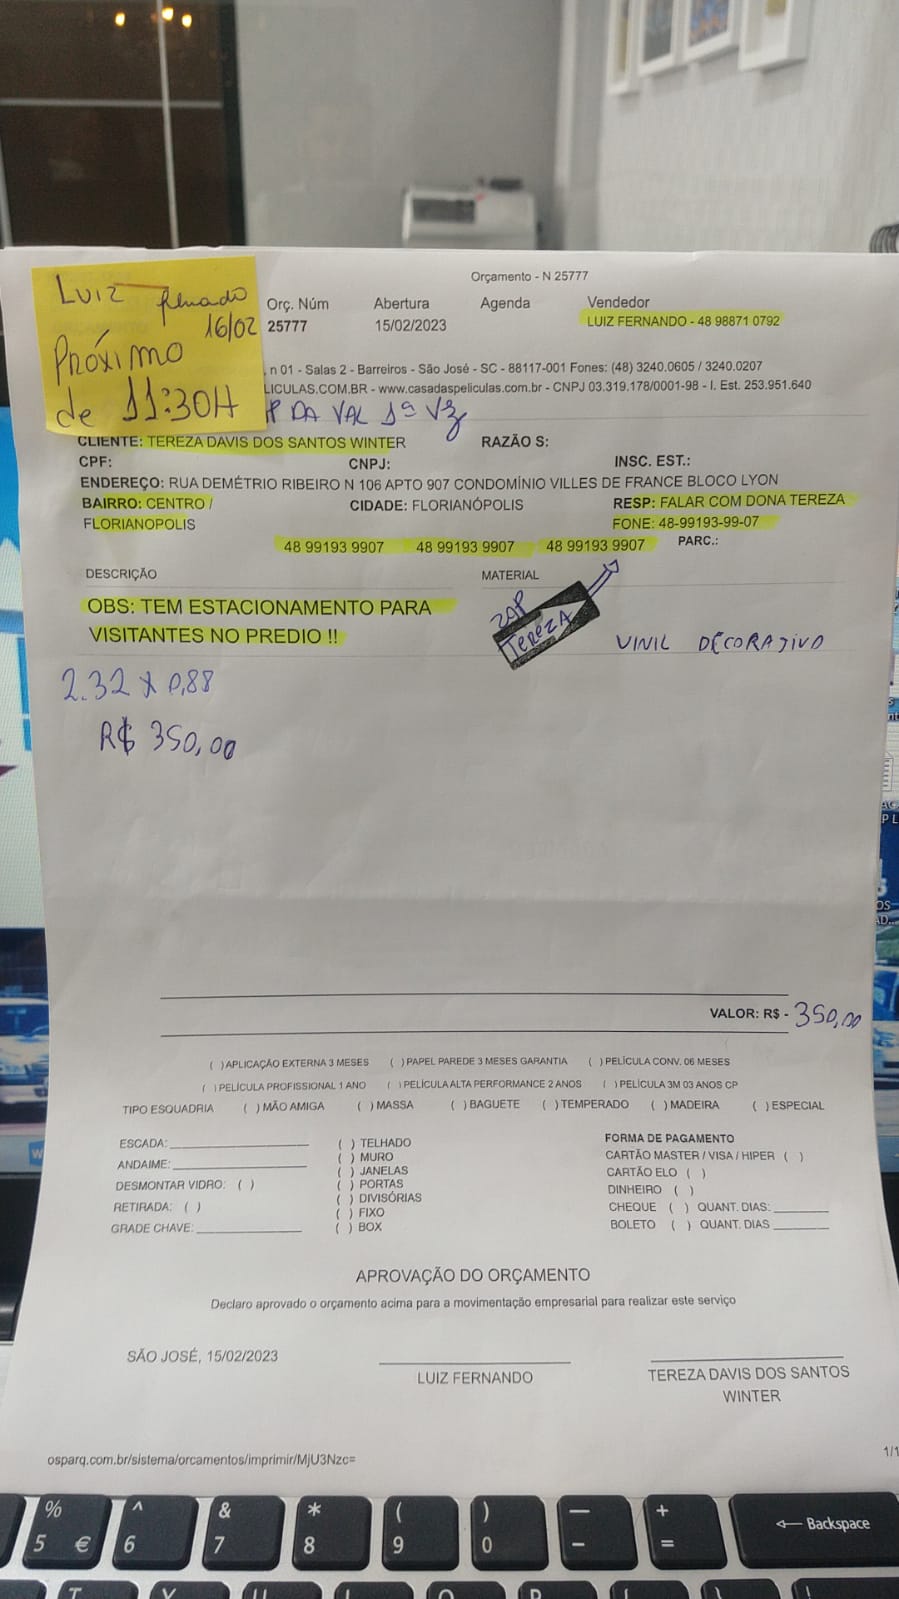 Orçamento - N 25777
LUIZ
16/02
Próximo
de 11:30H
Orç. Núm Abertura Agenda Vendedor
25777 15/02/2023 LUIZ FERNANDO - 48 98871 0792
, n 01 - Salas 2 - Barreiros - São José - SC - 88117-001 Fones: (48) 3240.0605 / 3240.0207
LICULAS.COM.BR - www.casadaspeliculas.com.br - CNPJ 03.319.178/0001-98 - I. Est. 253.951.640
DA VAL 1ª Vz
CLIENTE: TEREZA DAVIS DOS SANTOS WINTER RAZÃO S:
CPF: CNPJ: INSC. EST.:
ENDEREÇO: RUA DEMÉTRIO RIBEIRO N 106 APTO 907 CONDOMÍNIO VILLES DE FRANCE BLOCO LYON
BAIRRO: CENTRO / CIDADE: FLORIANÓPOLIS RESP: FALAR COM DONA TEREZA
FLORIANOPOLIS FONE: 48-99193-99-07
48 99193 9907 48 99193 9907 48 99193 9907 PARC.:
DESCRIÇÃO MATERIAL
OBS: TEM ESTACIONAMENTO PARA
VISITANTES NO PREDIO !!
ZAP
TEREZA
VINIL DECORATIVO
2.32 X 0,88
R$ 350,00
VALOR: R$ - 350,00
( ) APLICAÇÃO EXTERNA 3 MESES ( ) PAPEL PAREDE 3 MESES GARANTIA ( ) PELÍCULA CONV. 06 MESES
( ) PELÍCULA PROFISSIONAL 1 ANO ( ) PELÍCULA ALTA PERFORMANCE 2 ANOS ( ) PELÍCULA 3M 03 ANOS CP
TIPO ESQUADRIA ( ) MÃO AMIGA ( ) MASSA ( ) BAGUETE ( ) TEMPERADO ( ) MADEIRA ( ) ESPECIAL
ESCADA: ( ) TELHADO FORMA DE PAGAMENTO
( ) MURO CARTÃO MASTER / VISA / HIPER ( )
ANDAIME: ( ) JANELAS CARTÃO ELO ( )
DESMONTAR VIDRO: ( ) ( ) PORTAS DINHEIRO ( )
RETIRADA: ( ) ( ) DIVISÓRIAS CHEQUE ( ) QUANT. DIAS:
( ) FIXO BOLETO ( ) QUANT. DIAS
GRADE CHAVE: ( ) BOX
APROVAÇÃO DO ORÇAMENTO
Declaro aprovado o orçamento acima para a movimentação empresarial para realizar este serviço
SÃO JOSÉ, 15/02/2023
LUIZ FERNANDO TEREZA DAVIS DOS SANTOS
WINTER
osparq.com.br/sistema/orcamentos/imprimir/MjU3Nzc= 1/1
% ^ & * ( ) — +
5 € 6 7 8 9 0 - = ← Backspace